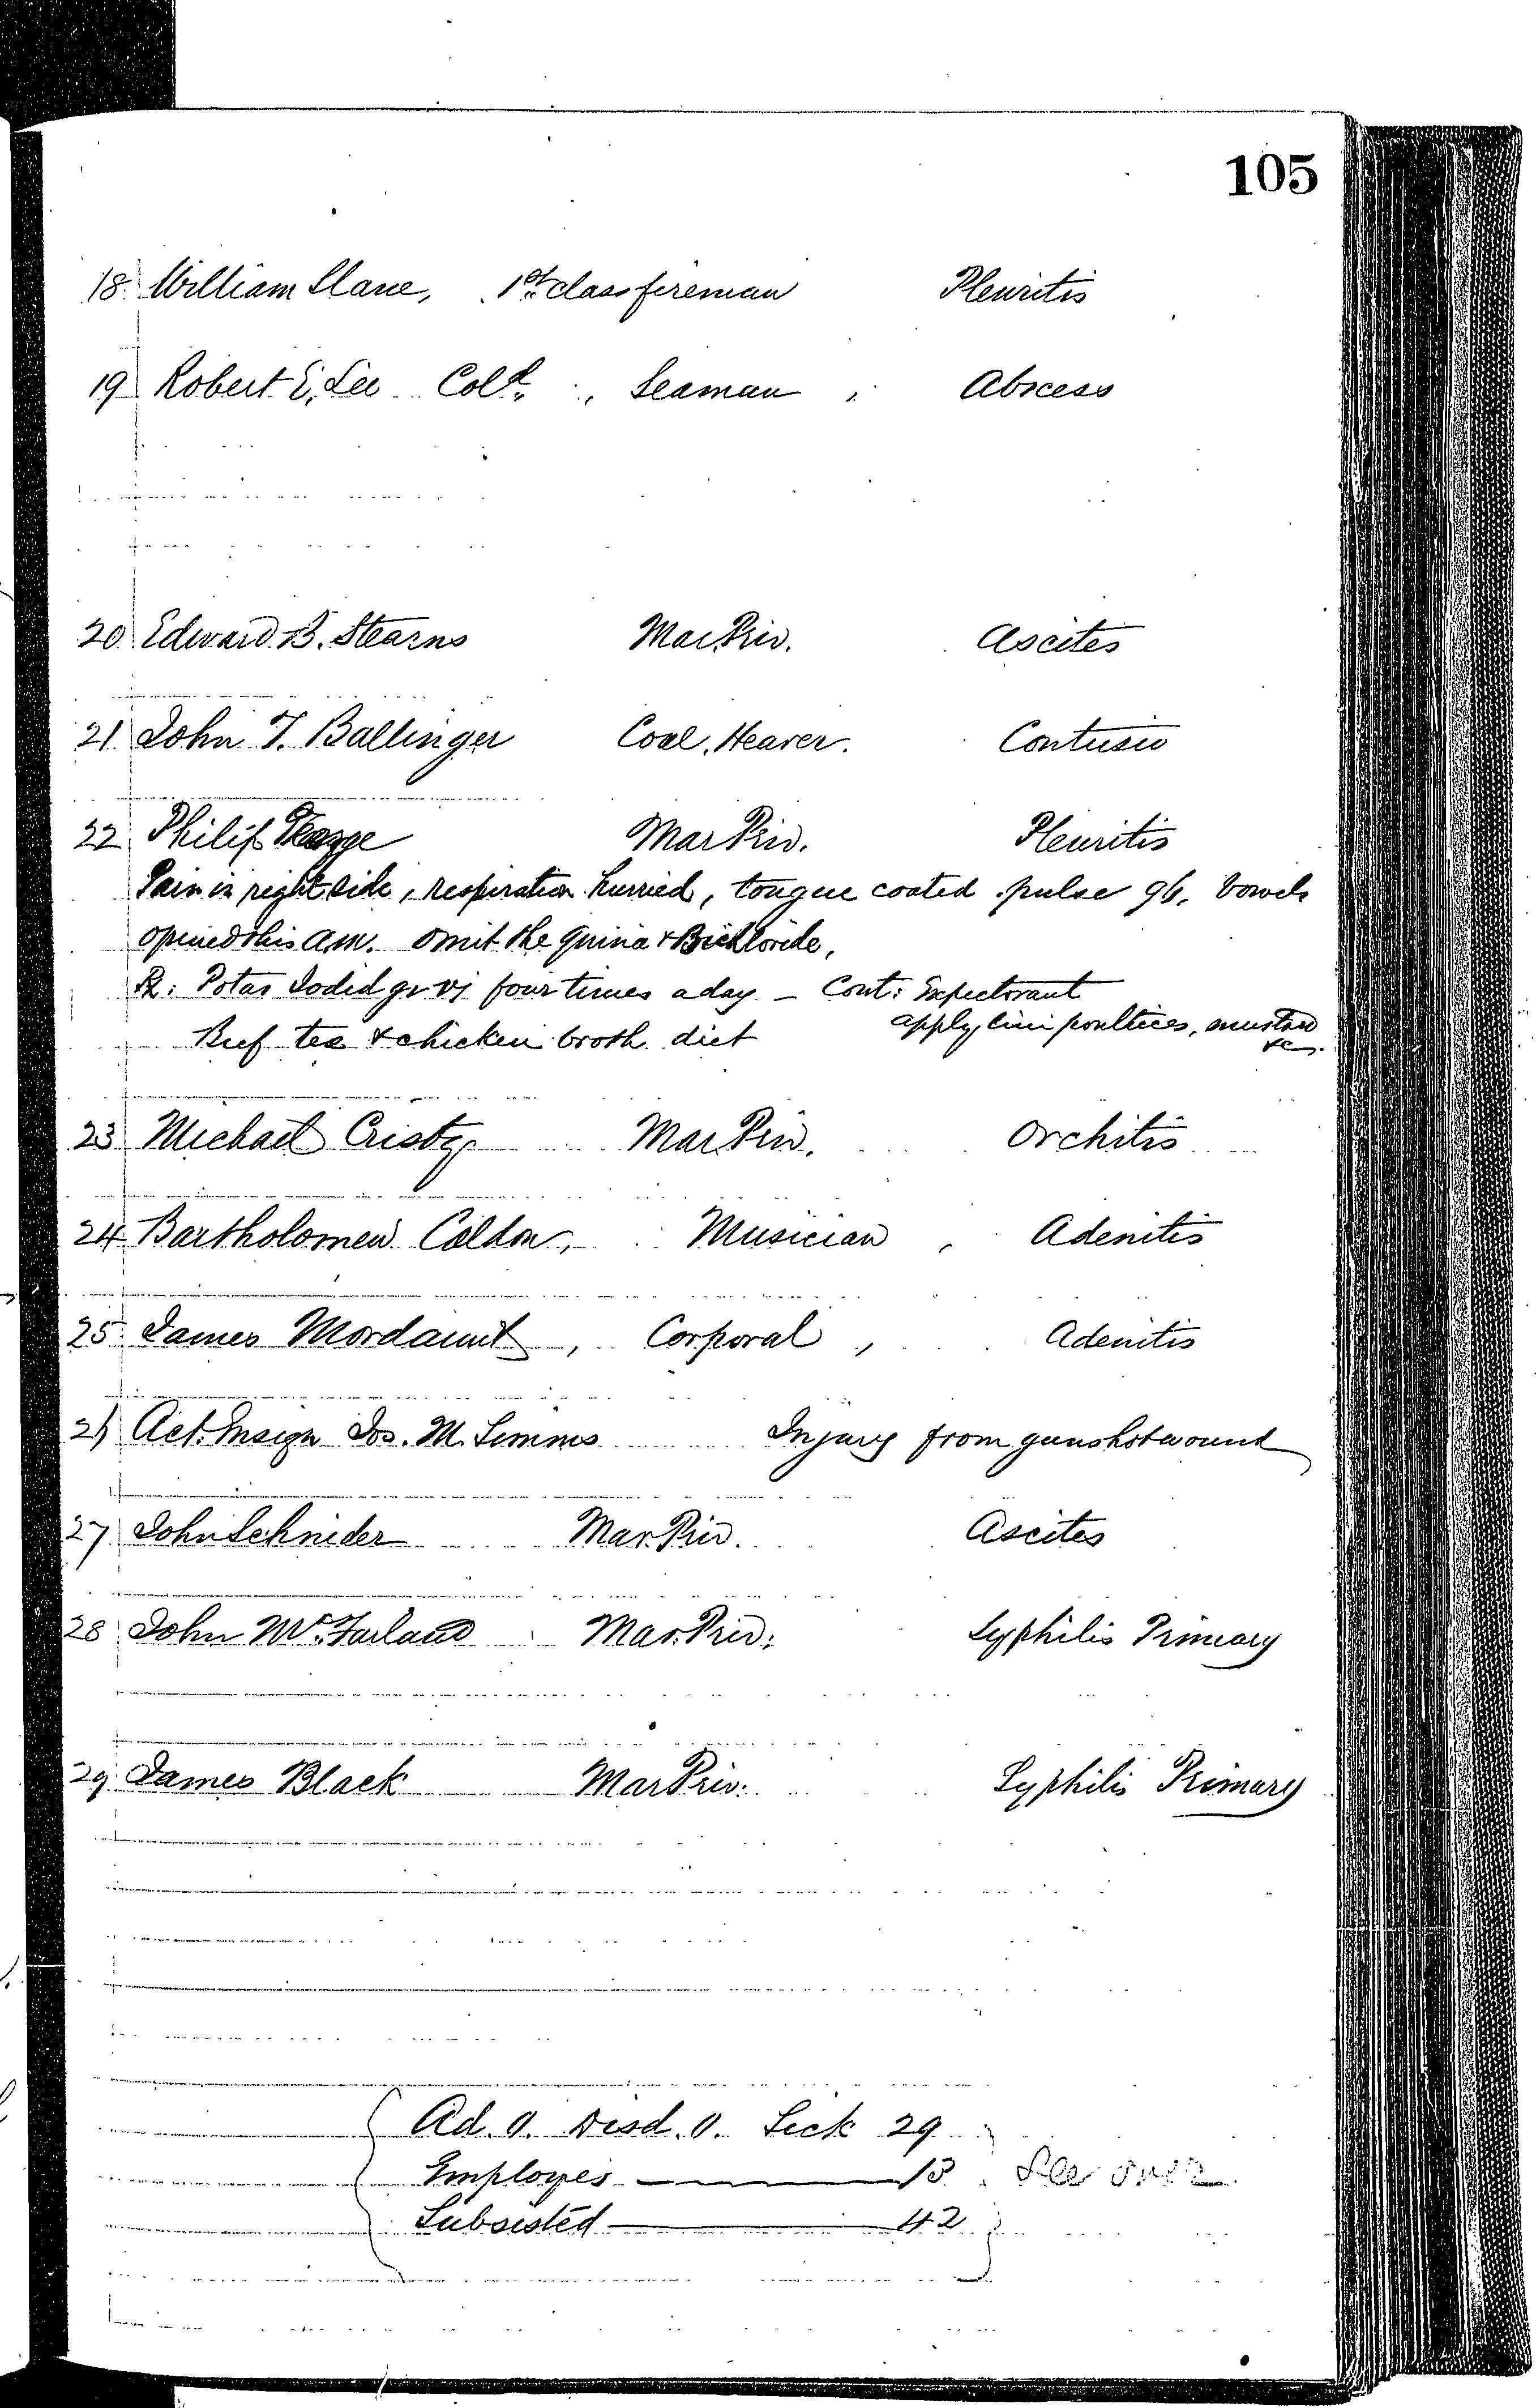 105
18 William Slane, 1st class fireman Pleuritis
19 Robert E. Lee Cold. , Seaman , Abscess
20 Edward B. Stearns Mar. Priv. Ascites
21 John T. Ballinger Coal. Heaver. Contusio
22 Philip Mar Priv. Pleuritis
Pain in right side, respiration hurried, tongue coated pulse 96, bowels
opened this A.M. Omit the Quina & Bichloride,
Rx: Potas Iodid gr vj four times a day – Cont: Expectorant
Beef tea & chicken broth diet apply lini poultices, mustard
&c.
23 Michael Mar. Priv. Orchitis
24 Bartholomew Musician , Adenitis
25 James Mordaunt , Corporal , Adenitis
26 Act. Ensign Jos. M. Simms Injury from gunshot wound
27 John Schnider Mar. Priv. Ascites
28 John McFarland Mar. Priv. Syphilis Primary
29 James Black Mar Priv. Syphilis Primary
Ad. 0. Disd. 0. Sick 29
Employes — 13 See over
Subsisted — 42